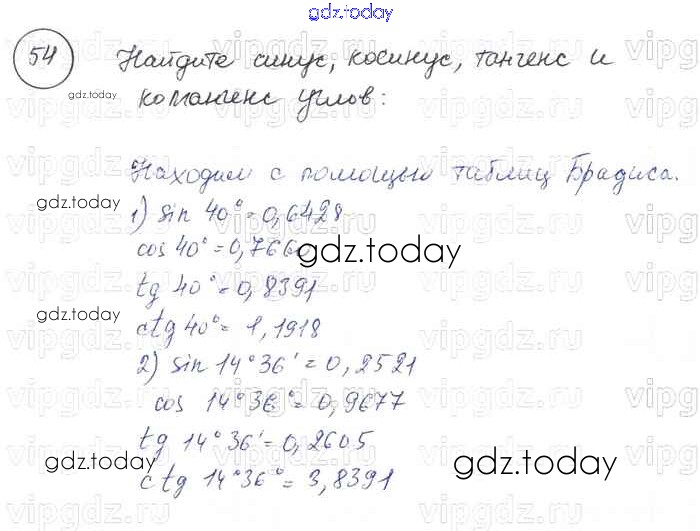 gdz.today
54 Найдите синус, косинус, тангенс и
котангенс углов:
gdz.today
Находим с помощью таблиц Брадиса.
gdz.today
1) sin 40° = 0,6428
cos 40° = 0,7660
gdz.today
tg 40° = 0,8391
gdz.today
ctg 40° = 1,1918
2) sin 14°36' = 0,2521
cos 14°36° = 0,9677
tg 14°36' = 0,2605
gdz.today
ctg 14°36° = 3,8391
gdz.today
vipgdz.ru